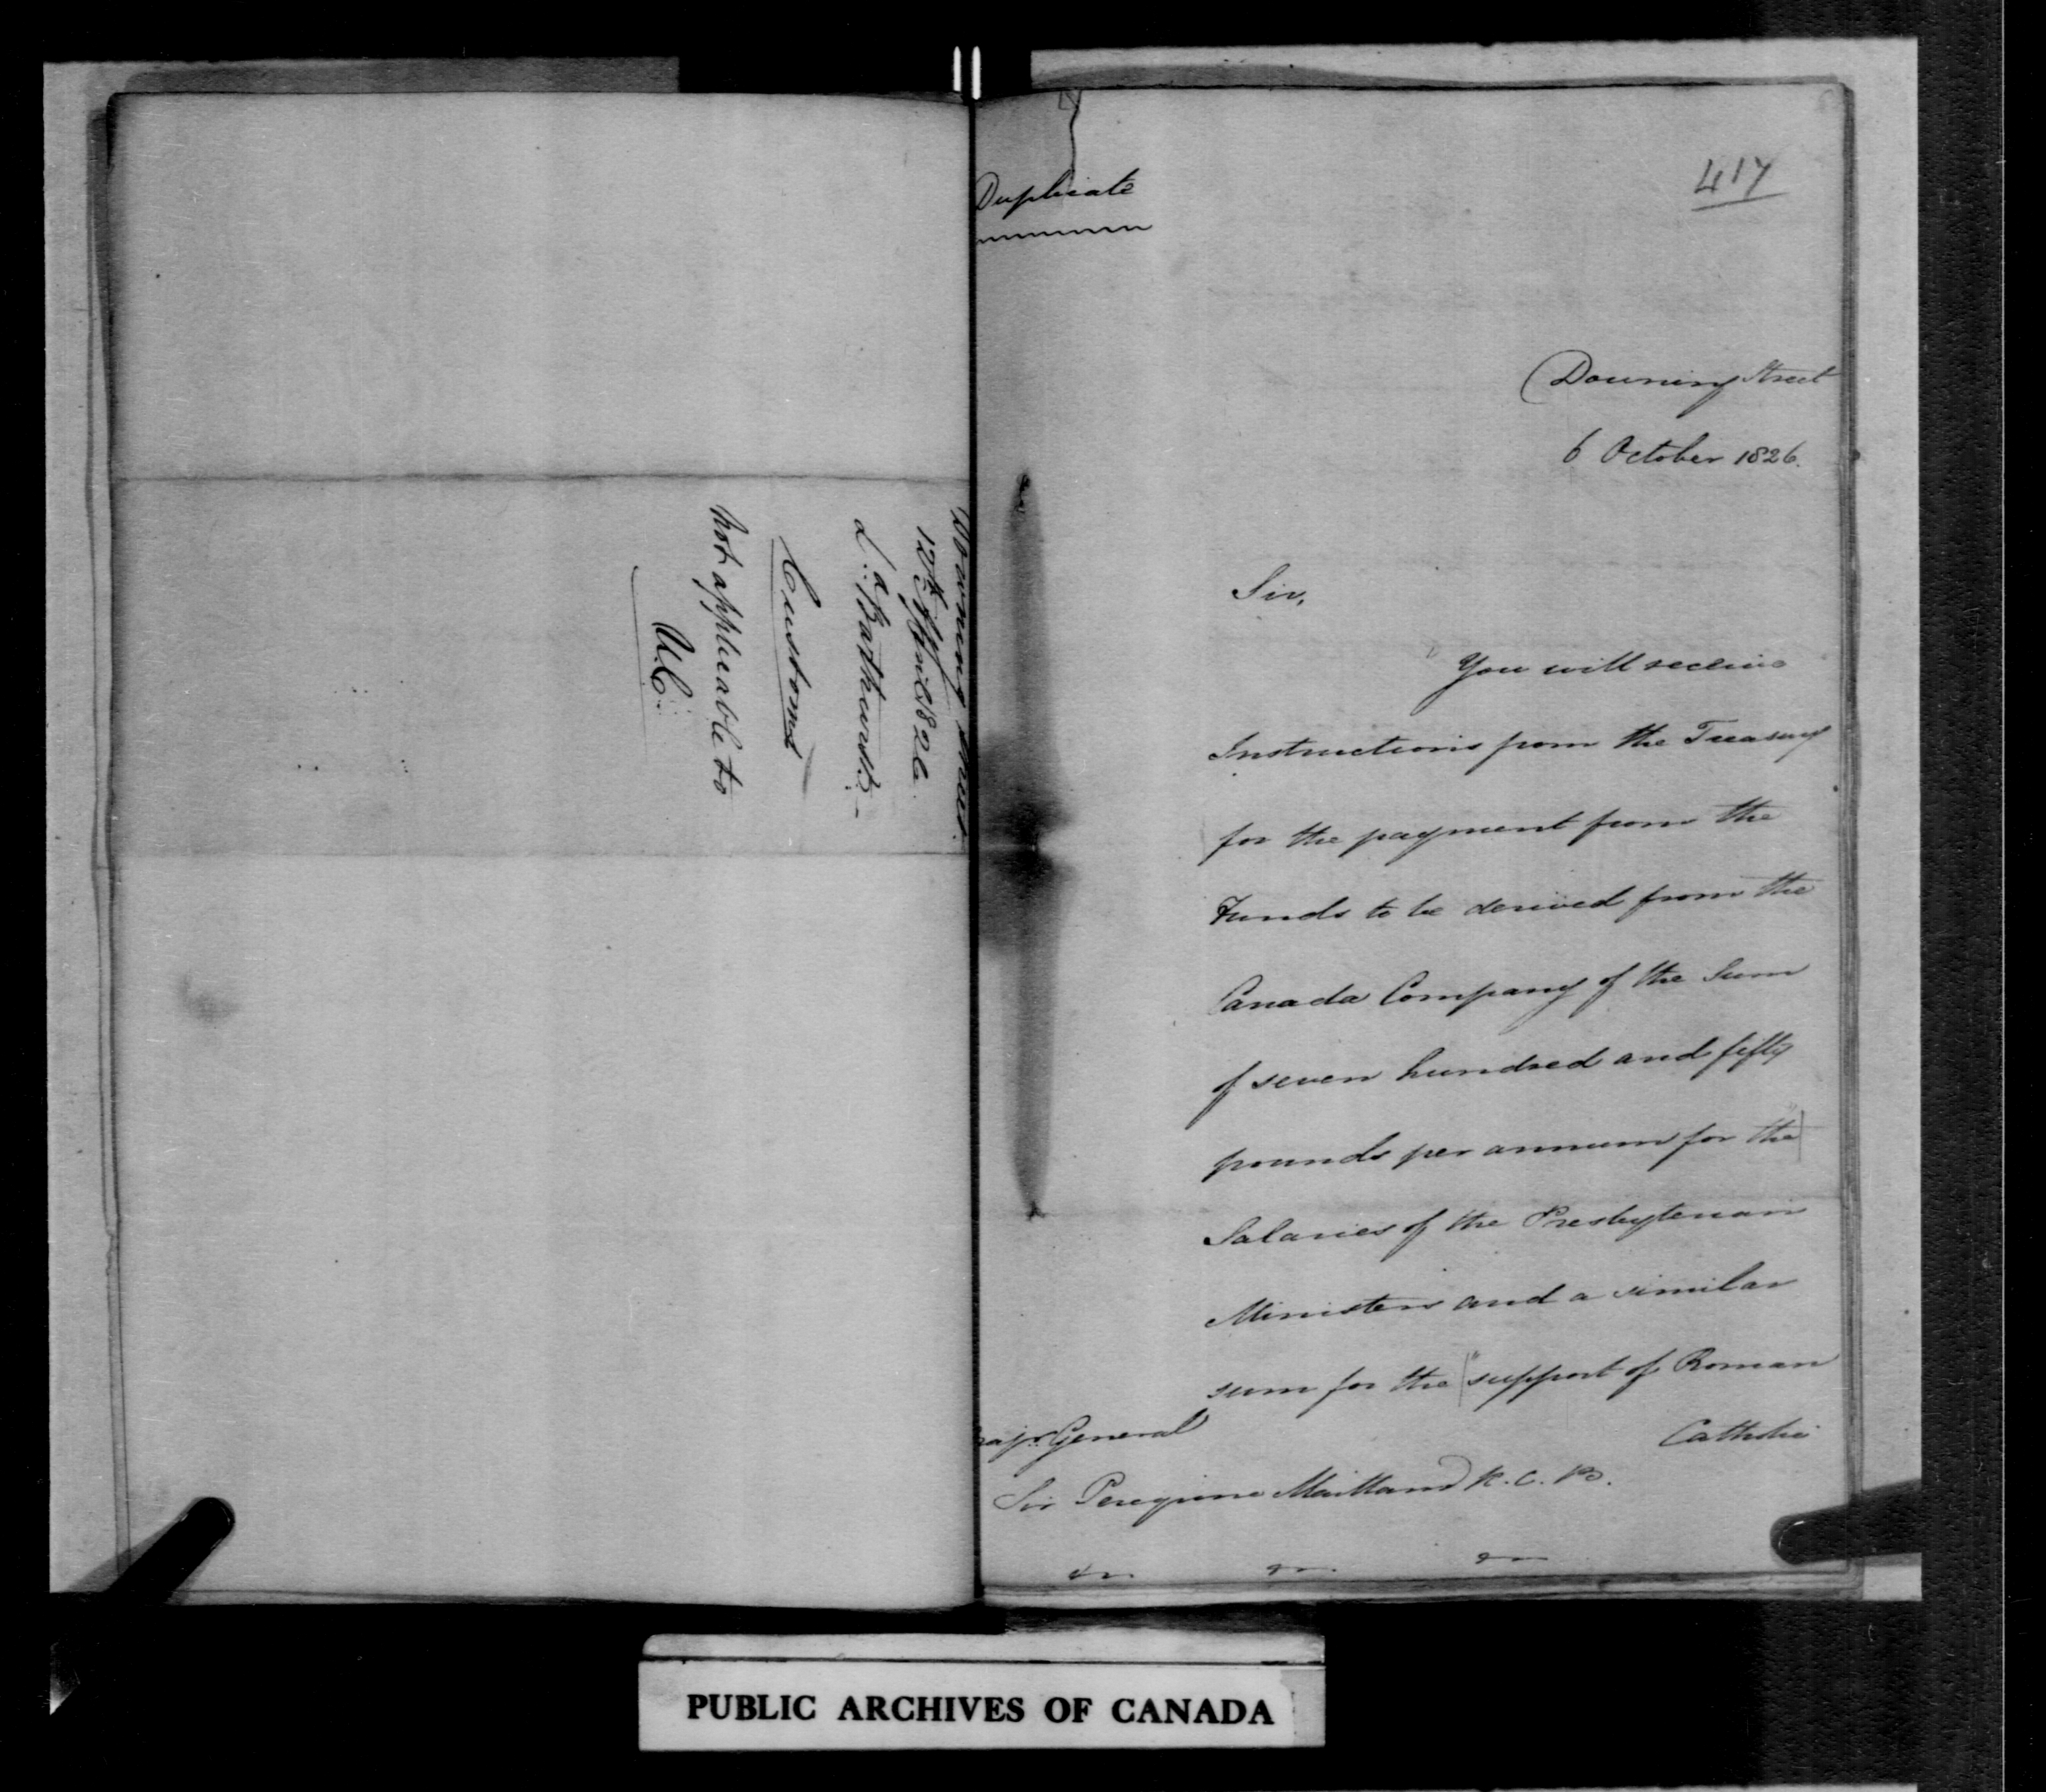 Downing Street
12th April 1826
Ld. Bathurst -
Customs
Not applicable to
U.C.
Duplicate
417
Downing Street
6 October 1826.
Sir,
You will receive
Instructions from the Treasury
for the payment from the
Funds to be derived from the
Canada Company of the Sum
of seven hundred and fifty
pounds per annum for the
Salaries of the Presbyterian
Ministers and a similar
sum for the support of Roman
Catholic
Majr. General
Sir Peregrine Maitland K.C.B.
PUBLIC ARCHIVES OF CANADA